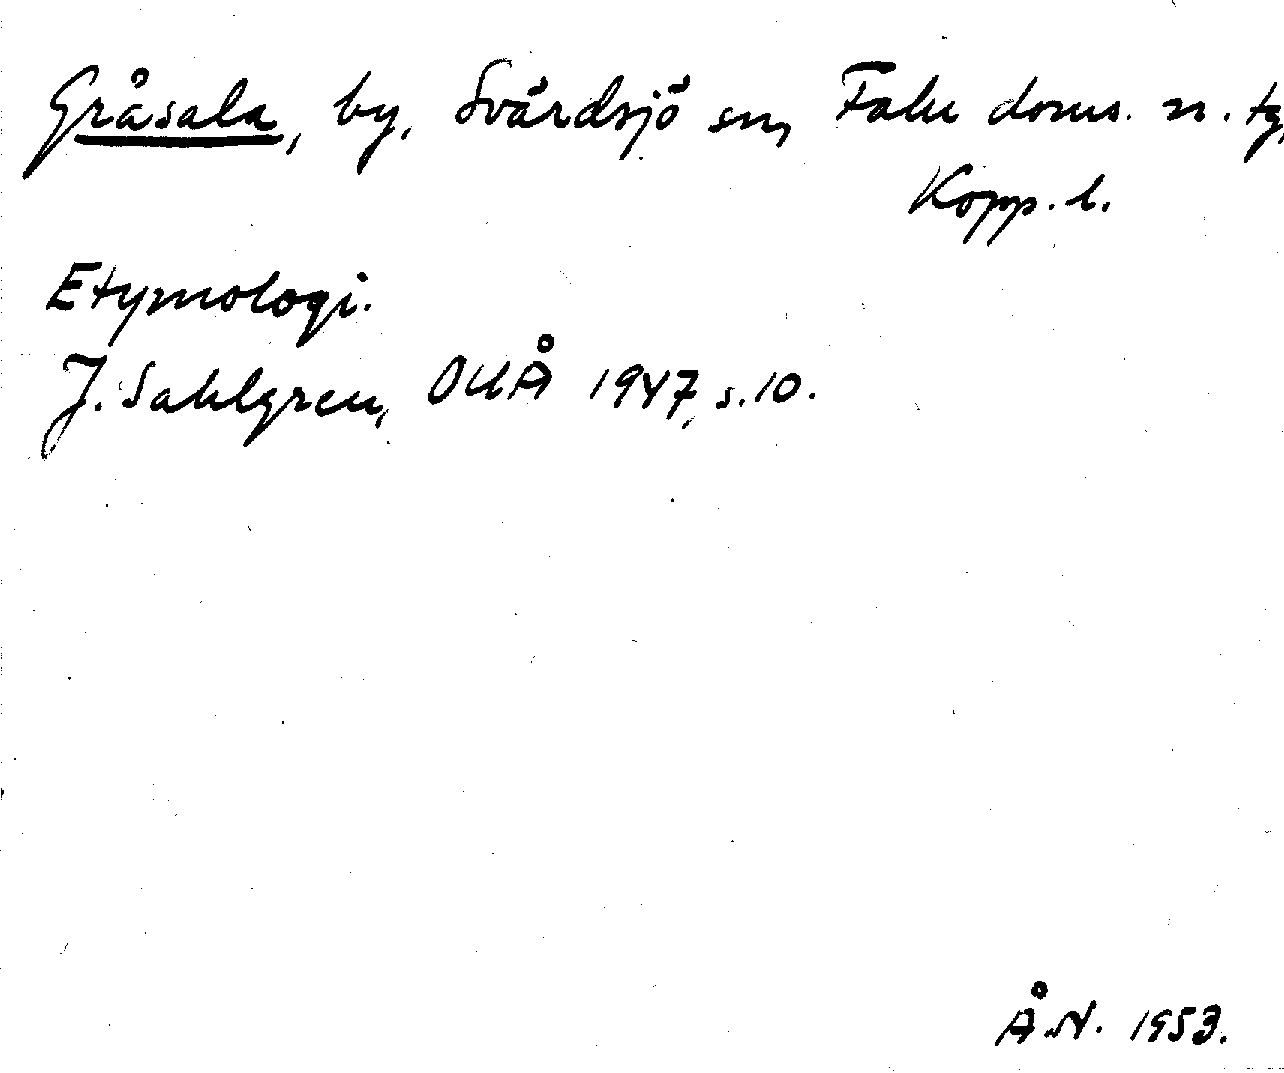 Gråsala, by, Svärdsjö sn, Falu doms. n. tg,
Kopp. l.
Etymologi.
J. Sahlgren, OUÅ 1947, s. 10.
Å.N. 1953.